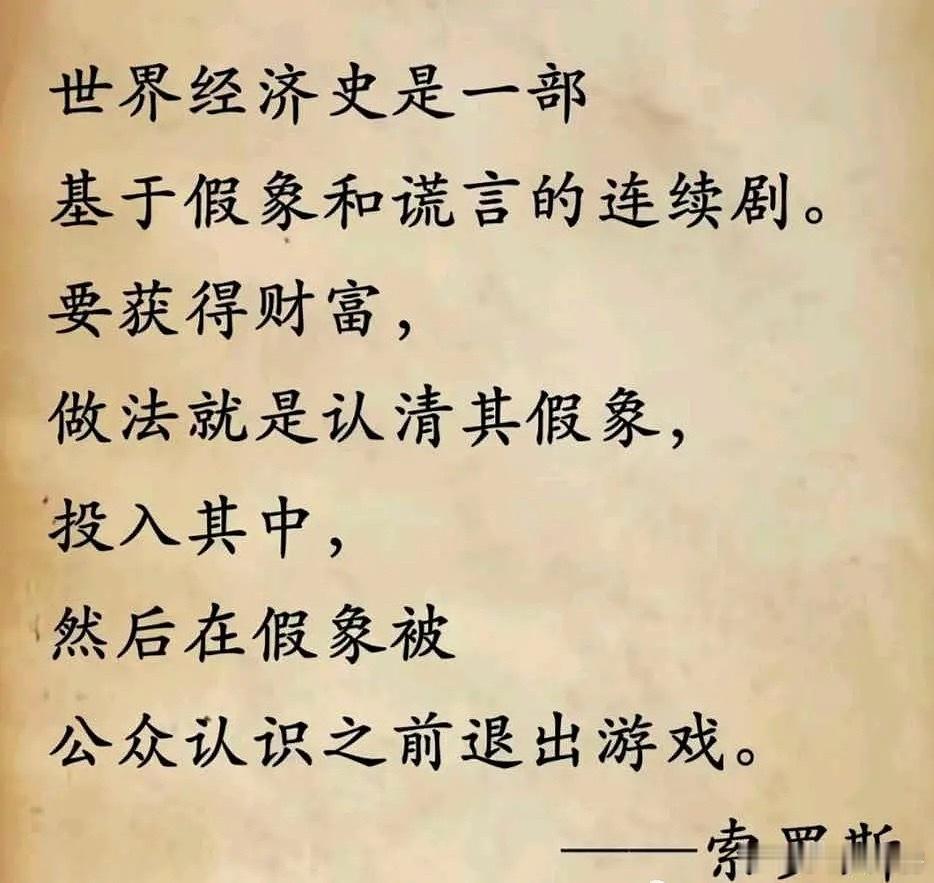 世界经济史是一部
基于假象和谎言的连续剧。
要获得财富，
做法就是认清其假象，
投入其中，
然后在假象被
公众认识之前退出游戏。
——索罗斯